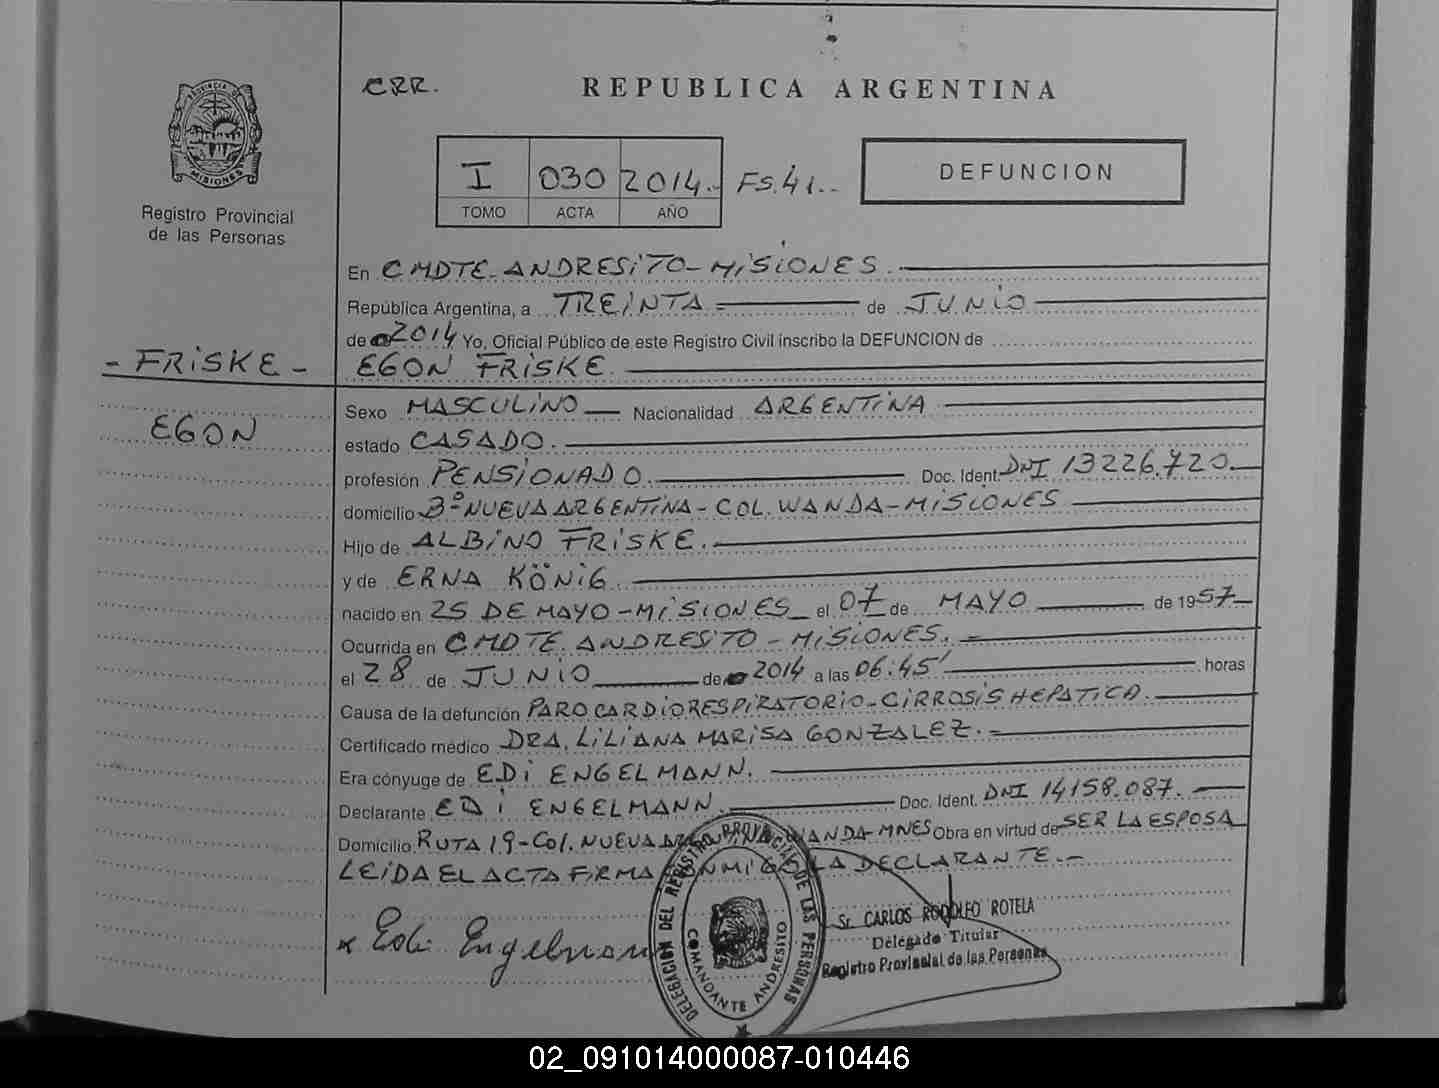 PROVINCIA DE
MISIONES
Registro Provincial
de las Personas
CRR.
REPUBLICA ARGENTINA
I 030 2014.- FS.41.-
TOMO ACTA AÑO
DEFUNCION
En CMDTE. ANDRESiTO-MiSiONES.
República Argentina, a TREiNTA de JUNiO
de 2014 Yo, Oficial Público de este Registro Civil inscribo la DEFUNCION de
- FRiSKE - EGON FRiSKE.
EGON
Sexo MASCULiNO Nacionalidad ARGENTiNA
estado CASADO.
profesión PENSiONADO Doc. Ident. DNI 13226.720.
domicilio Bº NUEVA ARGENTiNA - COL. WANDA - MiSiONES
Hijo de ALBiNO FRiSKE.
y de ERNA KÖNiG
nacido en 25 DE MAYO - MiSiONES el 07 de MAYO de 1957
Ocurrida en CMDTE ANDRESiTO - MiSiONES.-
el 28 de JUNiO de 2014 a las 06:45' horas
Causa de la defunción PARO CARDiORESPiRATORiO-CiRROSiS HEPATiCA.
Certificado médico DRA. LiLiANA MARiSA GONZALEZ.-
Era cónyuge de EDi ENGELMANN.
Declarante EDi ENGELMANN. Doc. Ident. DNI 14158.087.
Domicilio RUTA 19-Col. NUEVA WANDA-MNES Obra en virtud de SER LA ESPOSA
LEiDA EL ACTA FiRMA CONMiGO LA DECLARANTE.-
x Edi Engelmann
DELEGACION DEL REGISTRO PROVINCIAL DE LAS PERSONAS
COMANDANTE ANDRESITO
Sr. CARLOS RODOLFO ROTELA
Delegado Titular
Registro Provincial de las Personas
02_091014000087-010446